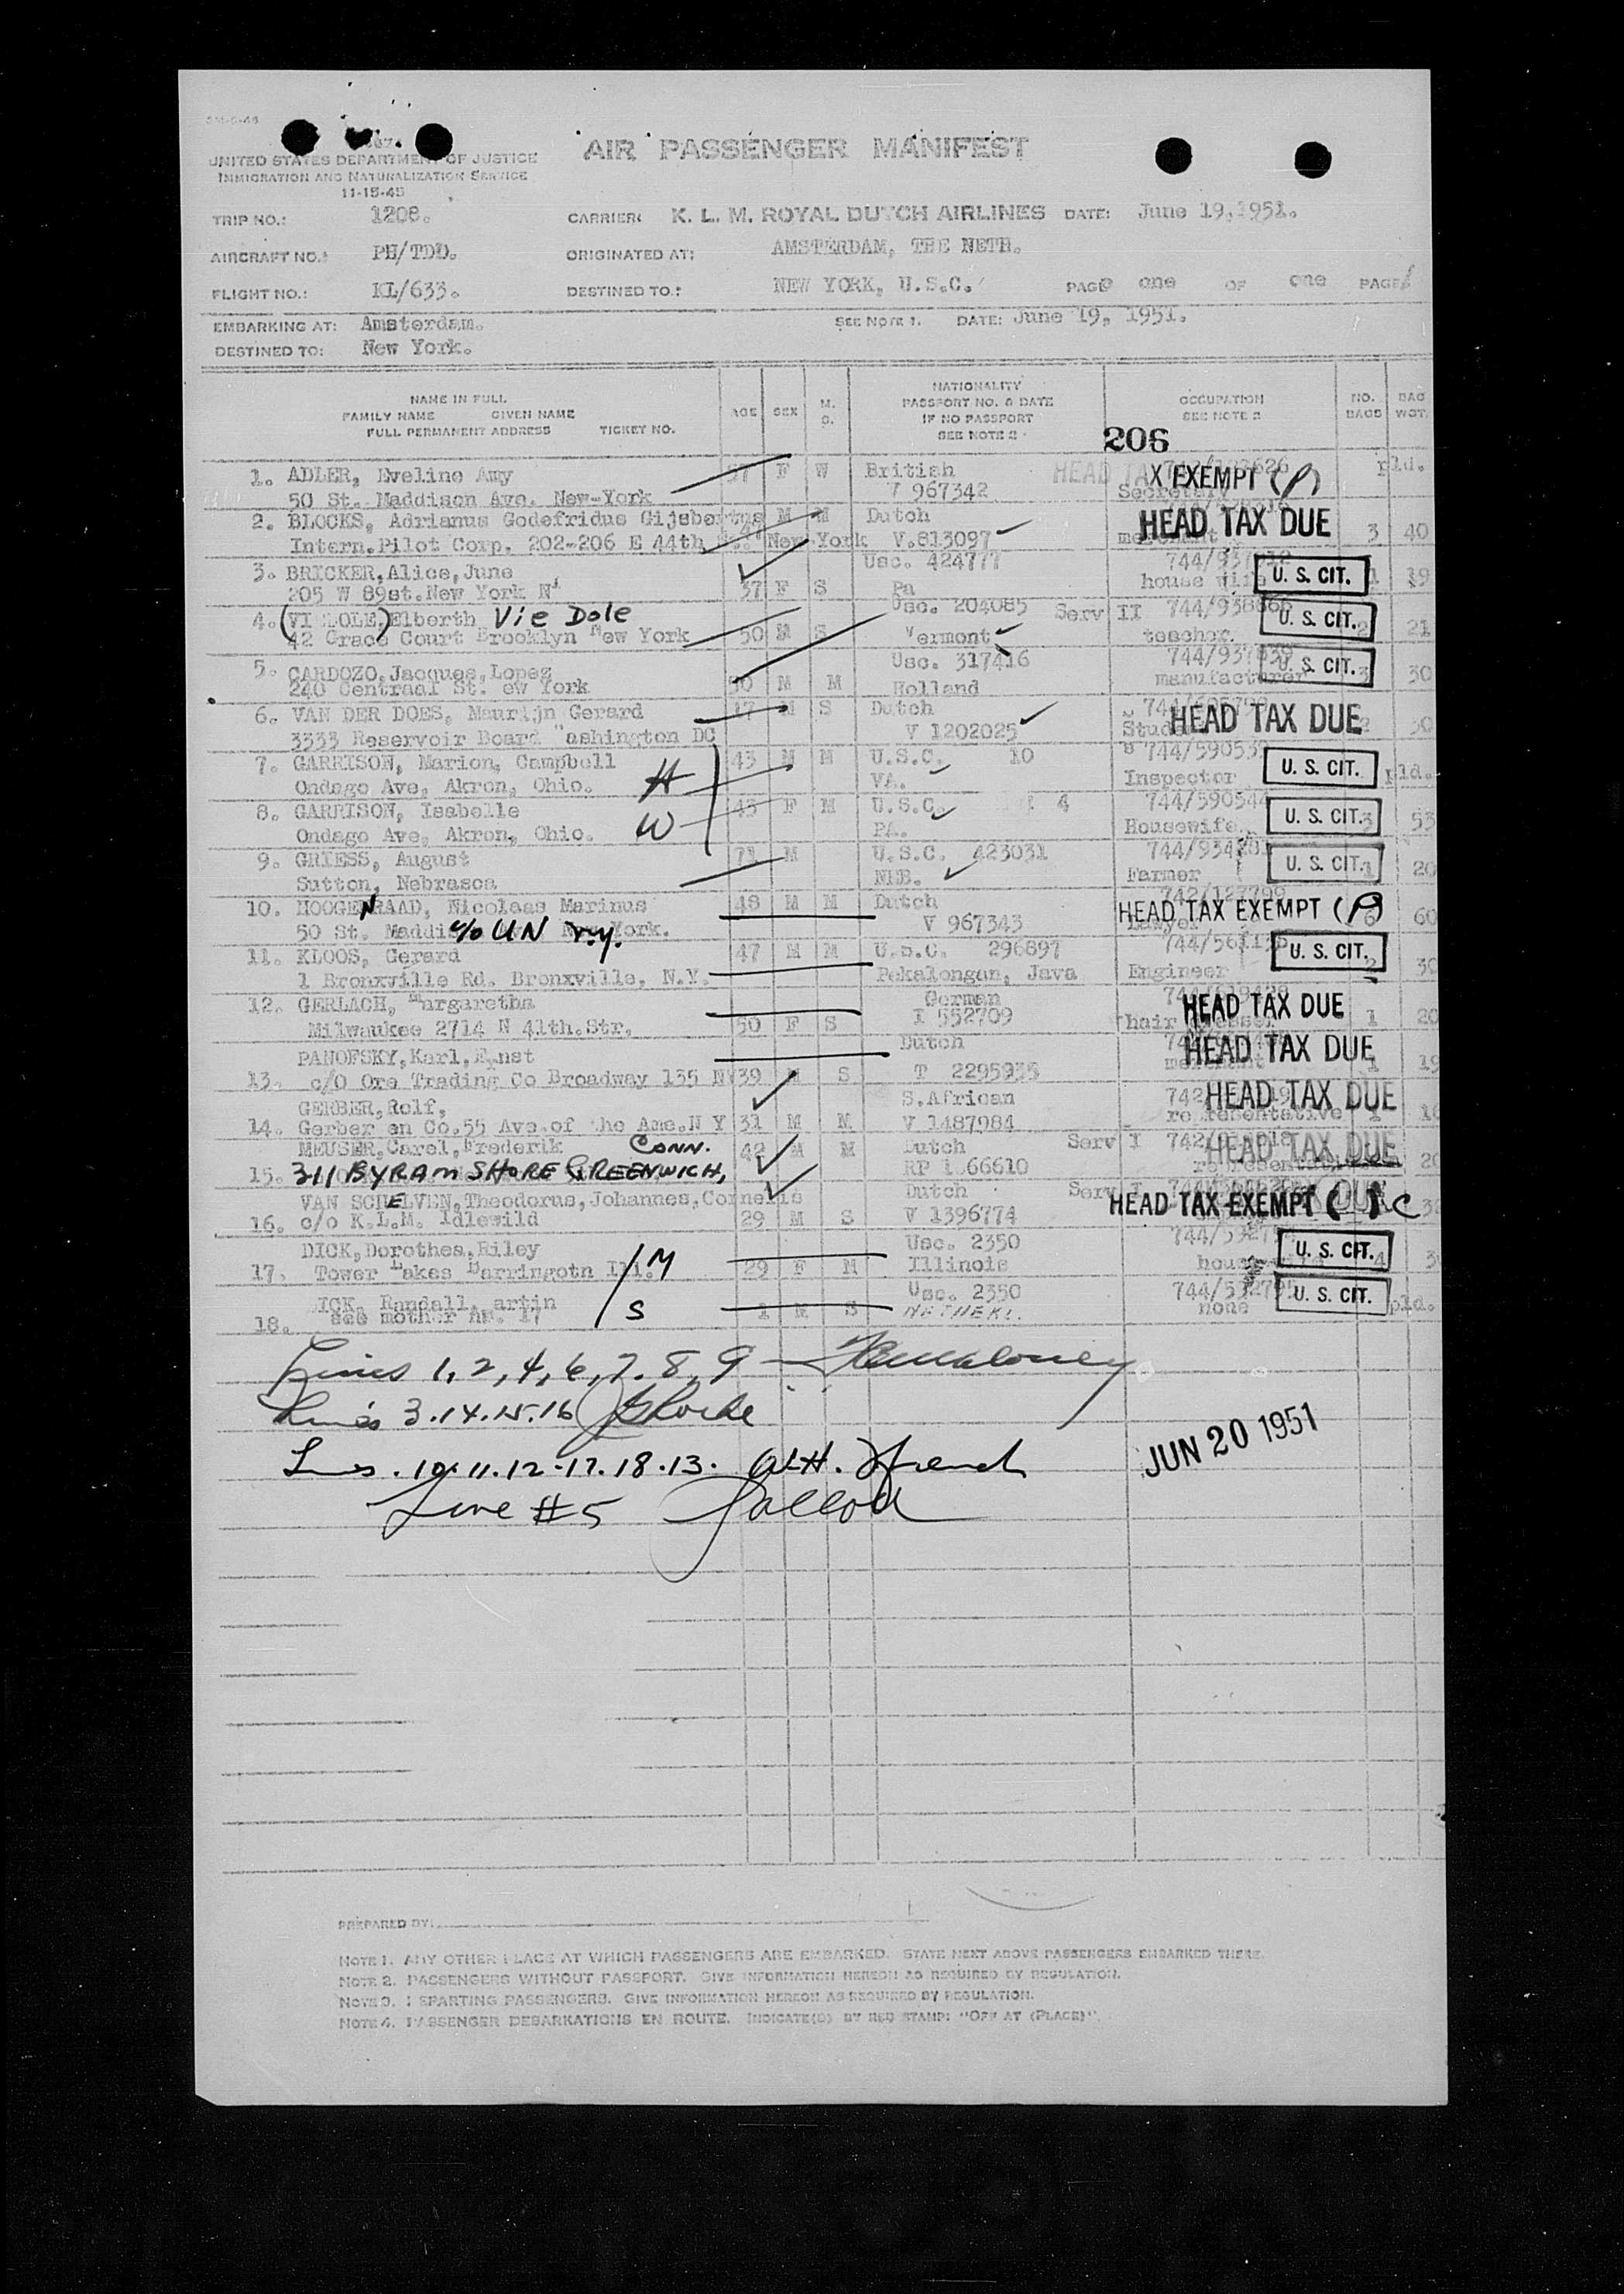 UNITED STATES DEPARTMENT OF JUSTICE
IMMIGRATION AND NATURALIZATION SERVICE
11-15-45
AIR PASSENGER MANIFEST
TRIP NO.: 1208. CARRIER: K. L. M. ROYAL DUTCH AIRLINES DATE: June 19, 1951.
AIRCRAFT NO.: PH/TDD. ORIGINATED AT: AMSTERDAM, THE NETH.
FLIGHT NO.: KL/633. DESTINED TO: NEW YORK, U.S.C. PAGE one OF one PAGE
EMBARKING AT: Amsterdam. SEE NOTE 1. DATE: June 19, 1951.
DESTINED TO: New York.
NAME IN FULL
FAMILY NAME GIVEN NAME
FULL PERMANENT ADDRESS TICKET NO.
AGE SEX M. S.
NATIONALITY
PASSPORT NO. & DATE
IF NO PASSPORT
SEE NOTE 2
OCCUPATION
SEE NOTE 2
NO. BAGS BAG WGT.
206
1. ADLER, Eveline Amy 57 F W British HEAD TAX EXEMPT (P) pld.
50 St. Maddison Ave. New-York V 967342 Secretary
2. BLOCKS, Adrianus Godefridus Gijsbertus M M Dutch HEAD TAX DUE 3 40
Intern.Pilot Corp. 202-206 E 44th New York V.813097 merchant
3. BRICKER, Alice, June Usc. 424777 U. S. CIT. 19
205 W 89st. New York N 37 F S Pa house wife
4. (VI DOLE) Elberth Vie Dole Usc. 204085 Serv II 744/938866 U. S. CIT. 2 21
42 Grace Court Brooklyn New York 50 M S Vermont teacher.
5. CARDOZO, Jacques, Lopez Usc. 317416 U. S. CIT. 3 30
240 Centraal St. ew York 50 M M Holland manufacturer
6. VAN DER DOES, Maurijn Gerard 17 M S Dutch HEAD TAX DUE 2 30
3333 Reservoir Board "ashington DC V 1202025
7. GARRISON, Marion, Campbell 43 M M U.S.C. 10 U. S. CIT. pld.
Ondago Ave, Akron, Ohio. H VA. Inspector
8. GARRISON, Isabelle 43 F M U.S.C. 4 744/590544 U. S. CIT. 3 53
Ondago Ave, Akron, Ohio. W PA. Housewife
9. GRIESS, August 71 M U.S.C. 423031 U. S. CIT. 1 20
Sutton, Nebrasca NEB. Farmer
10. HOOGENRAAD, Nicolaas Marinus 48 M M Dutch 742/127799 HEAD TAX EXEMPT (P) 6 60
50 St. Maddis c/o UN N.Y. York. V 967343 Lawyer
11. KLOOS, Gerard 47 M M U.S.C. 296897 U. S. CIT. 2 30
1 Bronxville Rd. Bronxville, N.Y. Pekalongan, Java Engineer
12. GERLACH, Margaretha German HEAD TAX DUE
Milwaukee 2714 N 41th.Str. 50 F S I 552709 hair dresser 1 20
PANOFSKY, Karl, Ernst Dutch HEAD TAX DUE
13. c/O Ore Trading Co Broadway 135 NY 39 M S T 2295935 merchant 1 19
GERBER, Rolf, S.African HEAD TAX DUE
14. Gerber en Co. 55 Ave. of the Ame. N Y 31 M M V 1487984 representative 1
MEUSER, Carel, Frederik CONN. 42 M M Dutch Serv I HEAD TAX DUE
15. 311 BYRAM SHORE GREENWICH, RP 66610 20
VAN SCHELVEN, Theodorus, Johannes, Cornelis Dutch Serv I HEAD TAX EXEMPT
16. c/o K.L.M. Idlewild 29 M S V 1396774
DICK, Dorothea, Riley M Usc. 2350 U. S. CIT. 4
17. Tower Lakes Barringotn Ill. 29 F M Illinois
ICK, Randall, artin Usc. 2350 U. S. CIT. pld.
18. see mother nr. 17 S 1 M S NETHERL. none
Lines 1, 2, 4, 6, 7, 8, 9
Lines 3. 14. 15. 16
JUN 20 1951
Lines. 10. 11. 12. 17. 18. 13. W.H. French
Line #5
PREPARED BY:
NOTE 1. ANY OTHER PLACE AT WHICH PASSENGERS ARE EMBARKED. STATE NEXT ABOVE PASSENGERS EMBARKED THERE.
NOTE 2. PASSENGERS WITHOUT PASSPORT. GIVE INFORMATION HEREON AS REQUIRED BY REGULATION.
NOTE 3. DEPARTING PASSENGERS. GIVE INFORMATION HEREON AS REQUIRED BY REGULATION.
NOTE 4. PASSENGER DEBARKATIONS EN ROUTE. INDICATE(D) BY RED STAMP: "OFF AT (PLACE)".